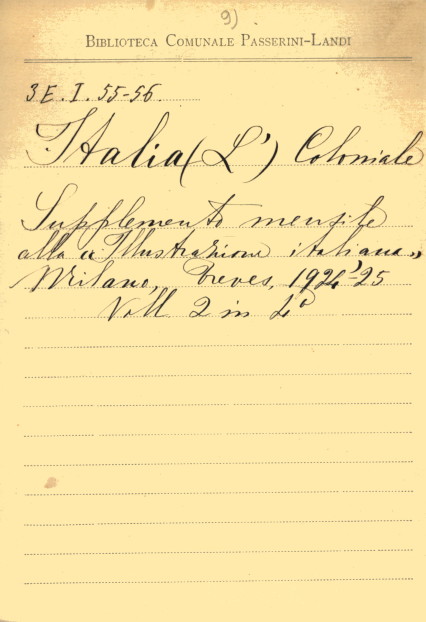 9)
BIBLIOTECA COMUNALE PASSERINI-LANDI
3 E. I. 55-56.
Italia (L') Coloniale
Supplemento mensile
alla « Illustrazione italiana »
Milano, Treves, 1924-25
Voll 2 in 4°